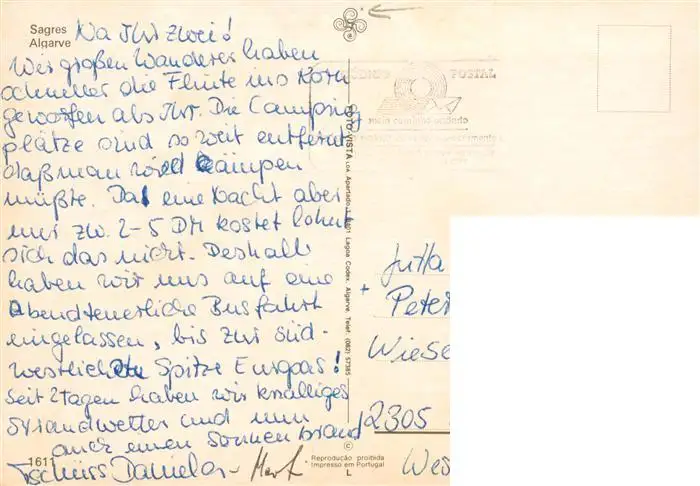 Sagres
Algarve
Na Ihr zwei!
Wir großen Wanderer haben
schneller die Flinte ins Korn
geworfen als Ihr. Die Camping
plätze sind so weit entfernt
daß man wild campen
müßte. Da eine Nacht aber
nur zw. 2-5 DM kostet lohnt
sich das nicht. Deshalb
haben wir uns auf eine
Abendteuerliche Busfahrt
eingelassen, bis zur süd-
westlichsten Spitze Europas!
Seit 2 Tagen haben wir knalliges
Strandwetter und nun
auch einen Sonnenbrand
Tschüss Daniela -
1611
FOTO-VISTA LDA. Apartado 8401 Lagoa Codex, Algarve. Telef. (082) 57365
©
Reprodução proibida
Impresso em Portugal
L
CÓDIGO POSTAL
meio caminho andado
Jutta
+ Peter
Wiese
2305
Wes